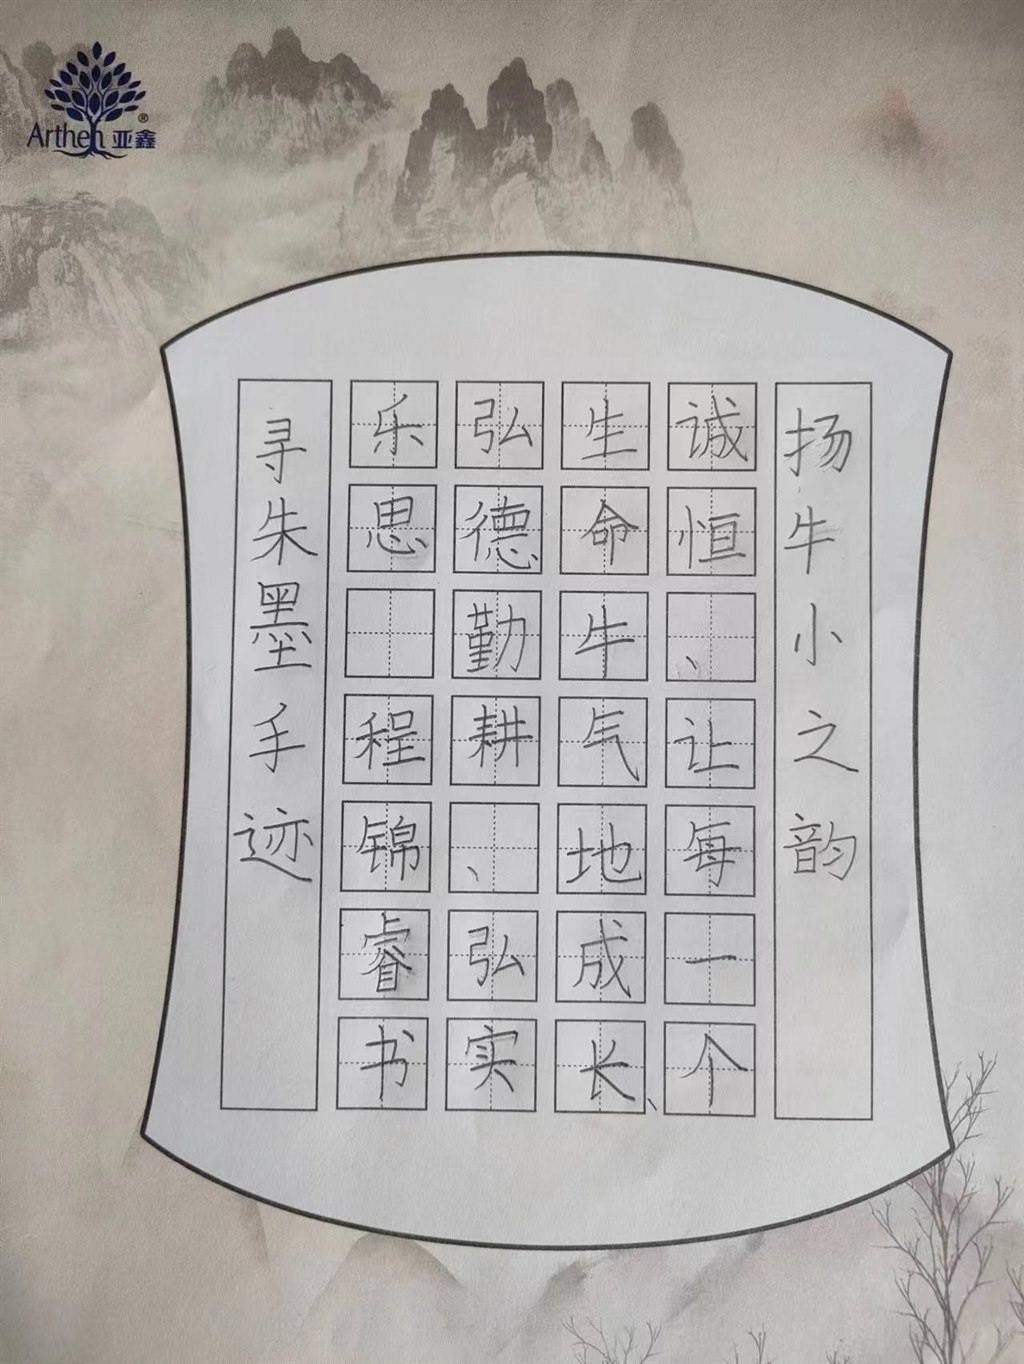 Arthen® 亚鑫
扬牛小之韵
诚恒、让每一个
生命牛气地成长、
弘德勤耕、弘实
乐思 程锦睿书
寻朱墨手迹